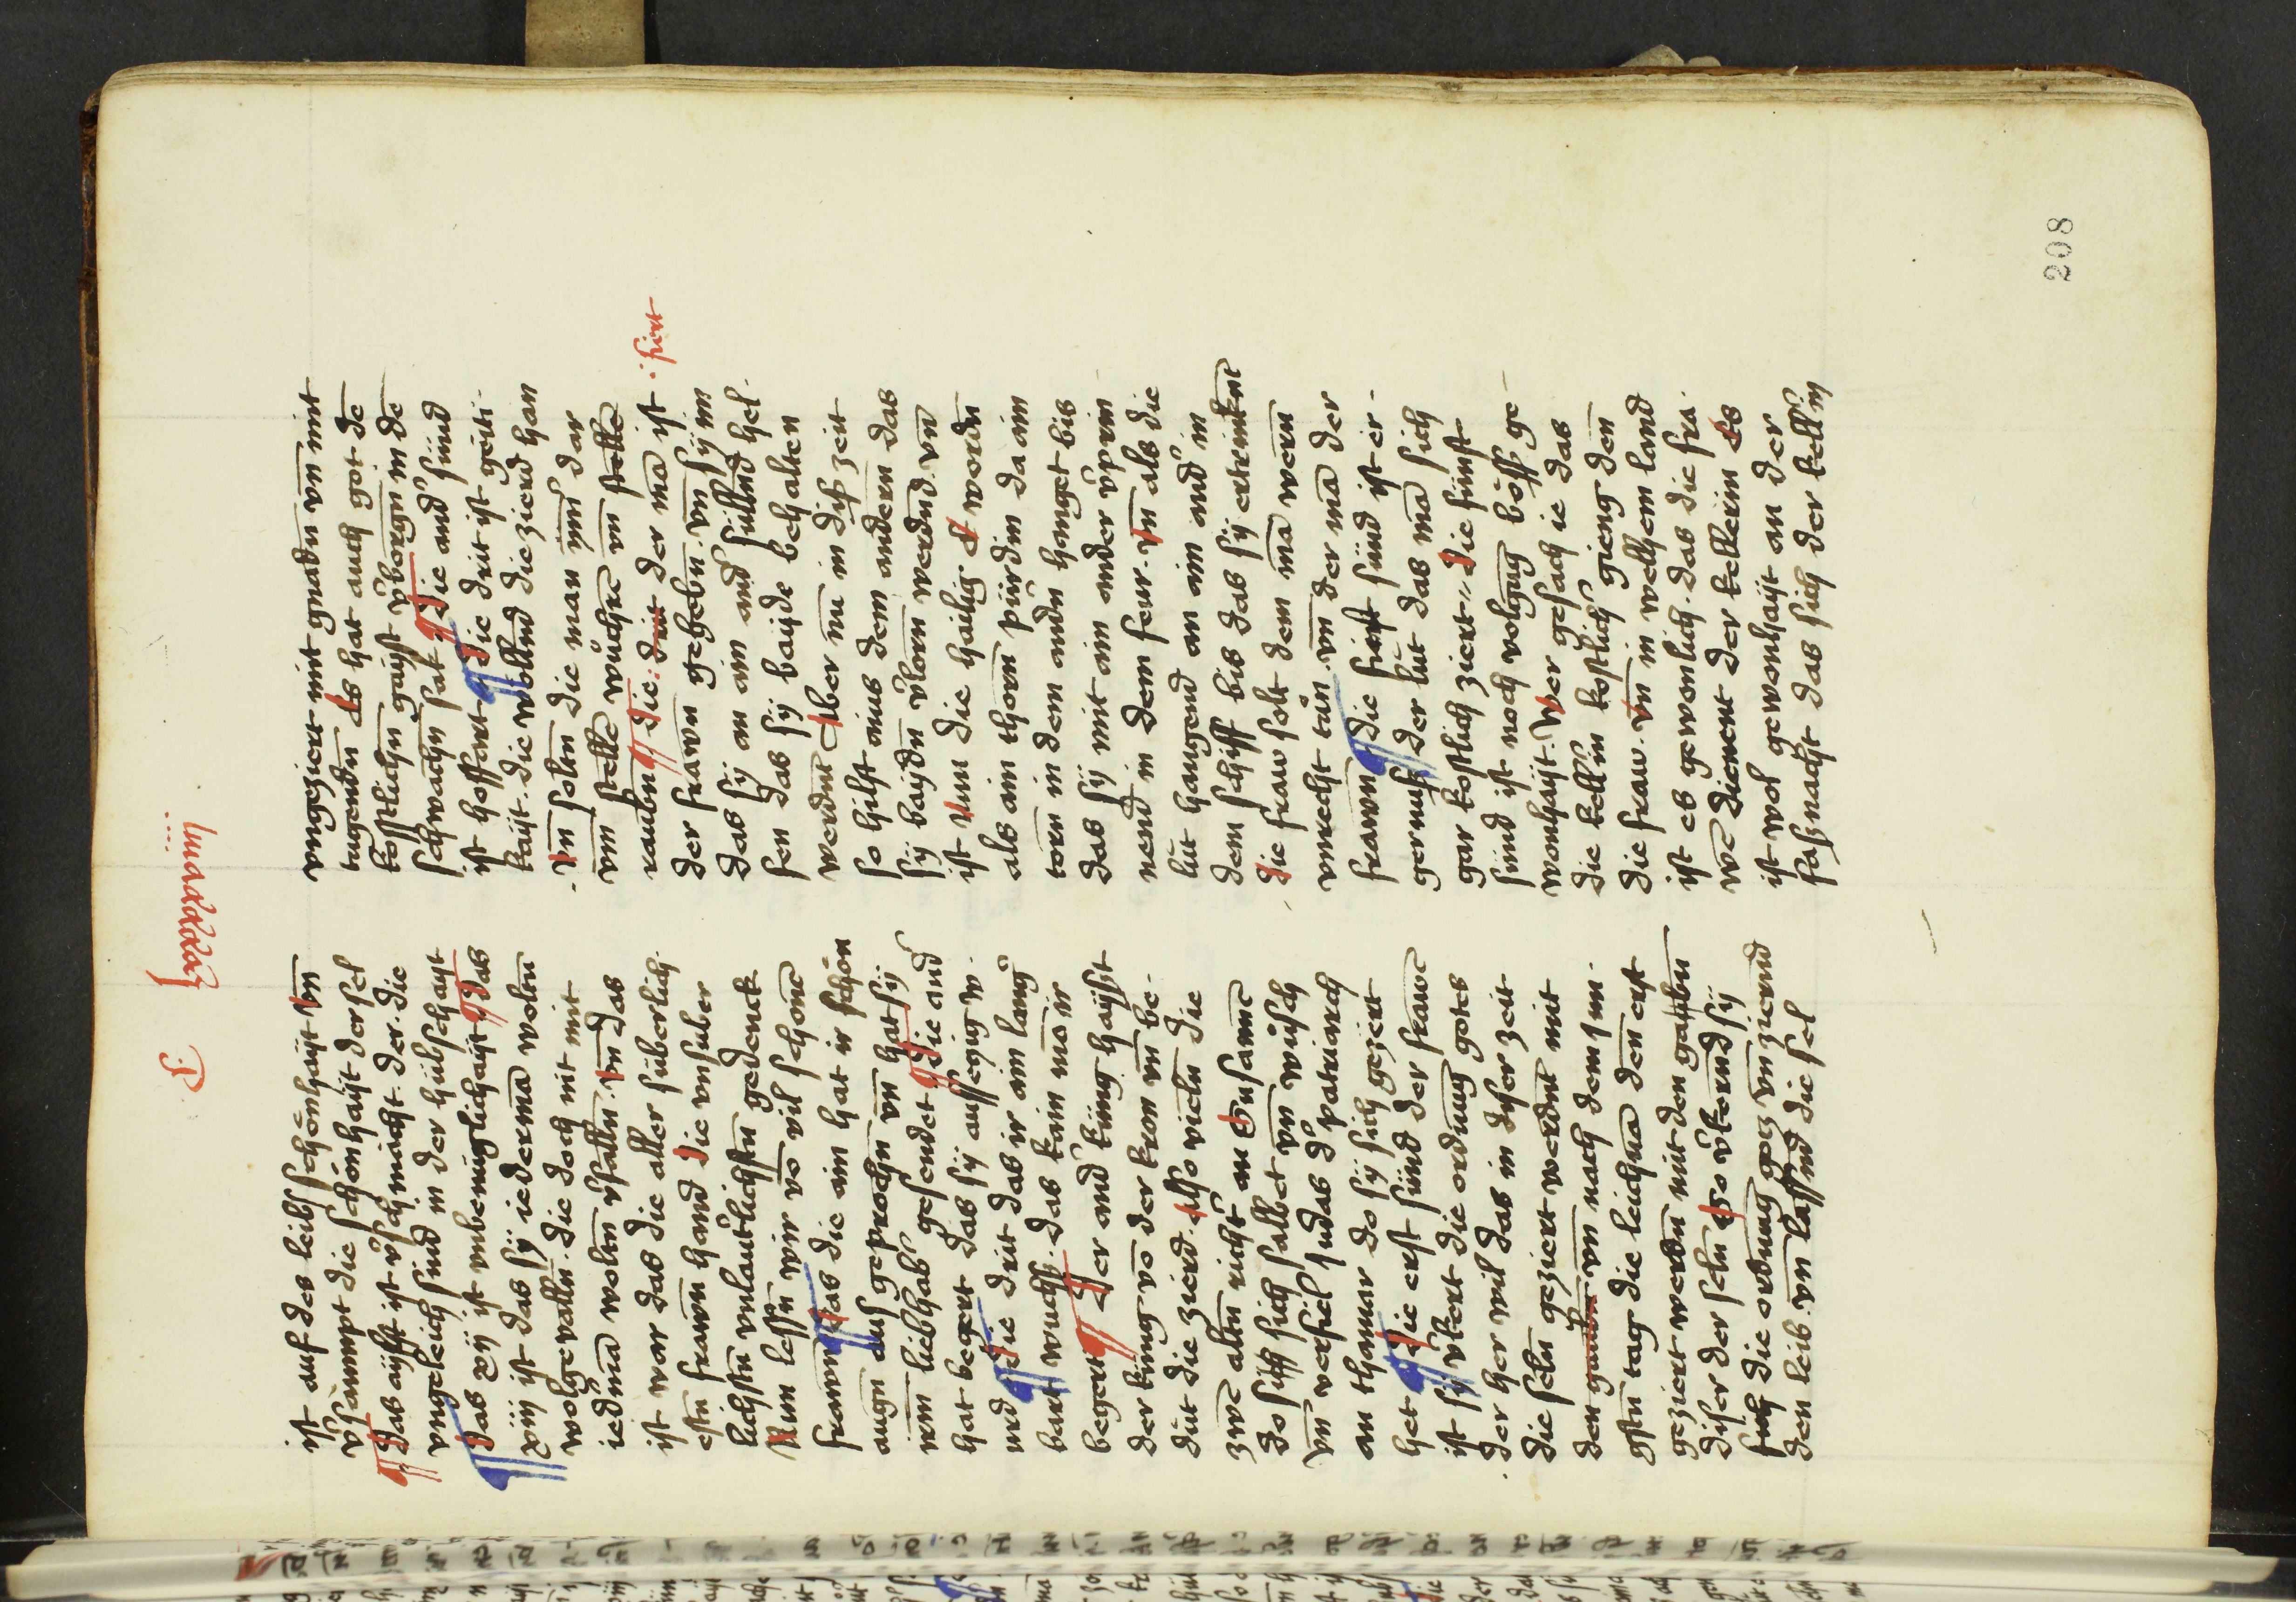 P luiadadaꝫ
208
ist auf des leibs schönhayt vn̄
v̓sampt die schönhayt der sel
¶ Das aÿlft ist v̓schmächt der. die
vngeleich sind in der hübschayt
¶ Das xij ist vnbenüglichayt ¶ das
xiij ist das sÿ iederma͞ woln̄
wolgevalln̄. die doch nit mit
iedma͞ woltn̄ v̓falln̄. vn̄ das
ist war das die aller süberlich
estn̄ frawn̄ hand die vnsuber
lichstn̄ vnlautlichstn̄ gedenck
Nun lessn̄ wir vo͞ vil schone͞
frawn̄ ¶ das die ain hat ir schön
augn̄ ausgeprochn̄ vn̄ hat sÿ
irem liebhab̓ gesendet ¶ die and̓
hat begert das sÿ aussetzig w-
urd ¶ die drit das ir ain lang̓
bart wuchß. das kain ma͞ ir
begert ¶ Der and̓ küng hayst
der küng vo͞ der kron vn̄ be-
düt die zierd. Also vieln̄ die
zwe͞ altn̄ richt̓ an Susanne͞
do si sich salbet vn̄ wusch
vn̄ verfiel Judas d̓ patriarch
an thamar do sÿ sich geziert
het ¶ die erst sünd der frawe͞
ist sÿ v̓kert die ordnung gotes
der her wil das in diser zeit
die seln̄ geziert werdnt mit
den gnaden vn̄ nach dem jun-
gstn̄ tag die leichna͞ den erst
geziert werdn̄ mit den gabn̄
diser der seln̄ So v̓kernd sÿ
such die ordnung gotz vn̄ ziernd
den leib. vn̄ lassnd die sel
vngeziert mit gnadn̄ vn̄ mit
tugendn̄ Es hat auch got de͞
kostlichn̄ gaist v̓borgn̄ in de͞
schwachn̄ sak ¶ die and̓ sünd
ist hoffart ¶ die drit ist geiti-
kayt. die wöllnd die zierd han
. vn̄ soltn̄ die man ym̄ dar
vm̄ stelle͞ wuchre͞ vn̄ stelle͞
raubn̄ ¶ die: drit der ma͞ ist . fiert
der frawn̄ gegebn̄. vn̄ sÿ im
das sÿ an ain and̓ süllnd hel-
fen das sÿ baÿde behalten
werdnt Aber nu in diß zeit
so hilft ains dem andern das
sÿ baÿdn̄ v̓lorn̄ werdnd. vn̄
ist vm̄ die hailig e wordn̄
als ain thorn̄ pürdin da ain
torn in dem andn̄ hanget bis
das sÿ mit ain ander v̓prin
nend in dem feur. vn̄ als die
lüt hangend an ain and̓ in
dem schiff bis das sÿ ertrinkent
die fraw solt dem ma͞ wern̄
vnrecht tün. vn̄ der ma͞ der
frawn̄ ¶ die fierft sünd ist er-
gernuß der lüt das ma͞ sich
gar kostlich ziert. die fünft
sünd ist noch volgung böß ge-
wonhayt. Wer gesach ie das
die kell̓in kostlich̓ gieng den̄
die fraw. vn̄ in welhem land
ist es gewonlich. das die fra-
we͞ dienent der kellerin Es
ist wol gewonhayt an der
faßnacht das sich der kell̓in